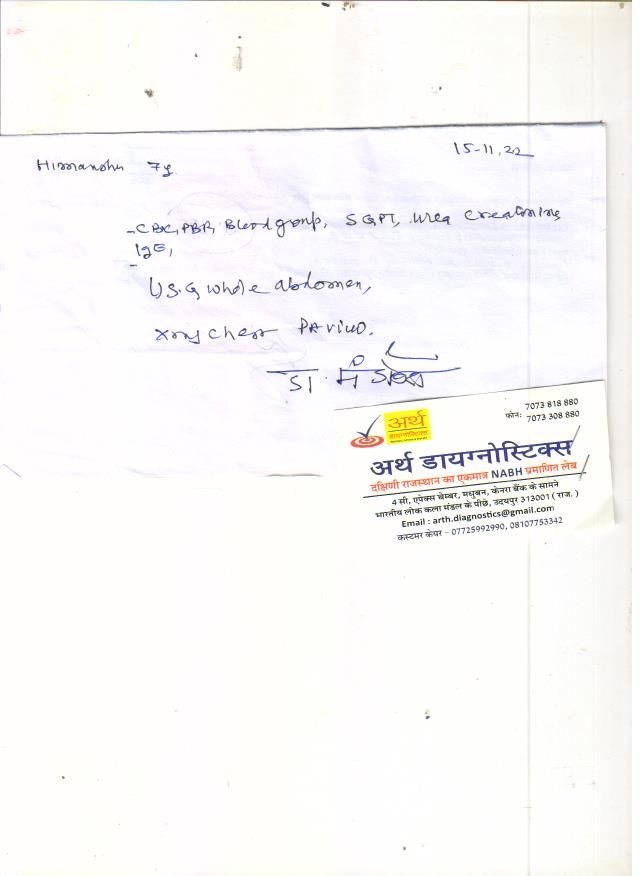 15-11.22
Himanshu 7y
- CBC, PBF, Blood group, SGPT, Urea Creatinine
IgE,
-
U.S.G whole abdomen,
Xray Chest PA view.
डा.
अर्थ
डायग्नोस्टिक्स
7073 818 880
फोन: 7073 308 880
अर्थ डायग्नोस्टिक्स
दक्षिणी राजस्थान का एकमात्र NABH प्रमाणित लेब
4 सी, एपेक्स चेम्बर, मधुबन, केनरा बैंक के सामने
भारतीय लोक कला मंडल के पीछे, उदयपुर 313001 ( राज. )
Email : arth.diagnostics@gmail.com
कस्टमर केयर - 07725992990, 08107753342